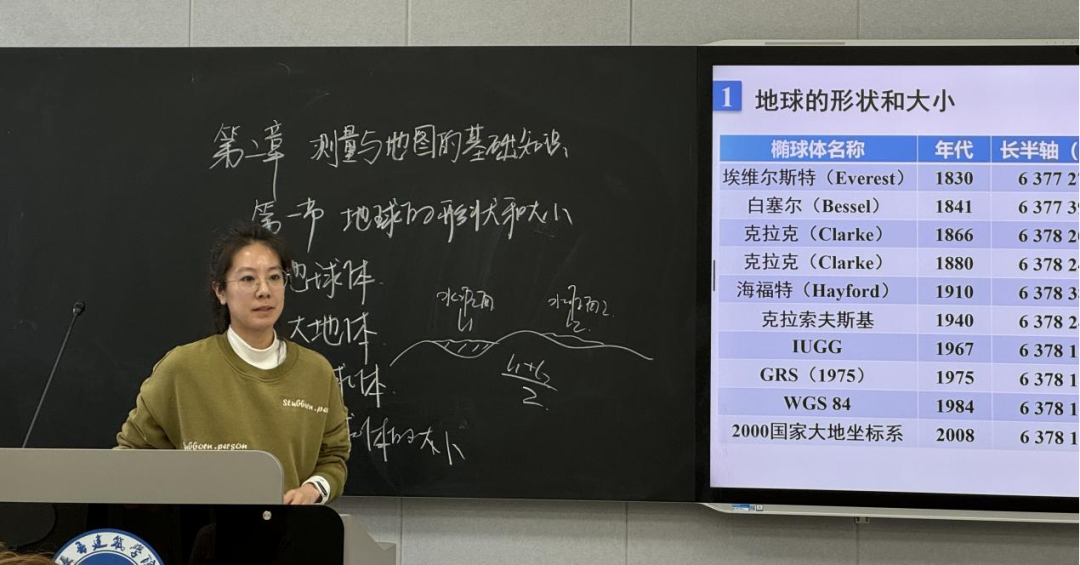 第二章 测量与地图的基础知识
第一节 地球的形状和大小
地球体
大地体
球体
球体的大小
水准面 水准面2
L1 L2
L1+L2
2
stubborn.pe
bborn.person
建筑学
1 地球的形状和大小
椭球体名称 年代 长半轴（
埃维尔斯特（Everest） 1830 6 377 2
白塞尔（Bessel） 1841 6 377 39
克拉克（Clarke） 1866 6 378 20
克拉克（Clarke） 1880 6 378 2
海福特（Hayford） 1910 6 378 3
克拉索夫斯基 1940 6 378 2
IUGG 1967 6 378 1
GRS（1975） 1975 6 378 1
WGS 84 1984 6 378 1
2000国家大地坐标系 2008 6 378 1